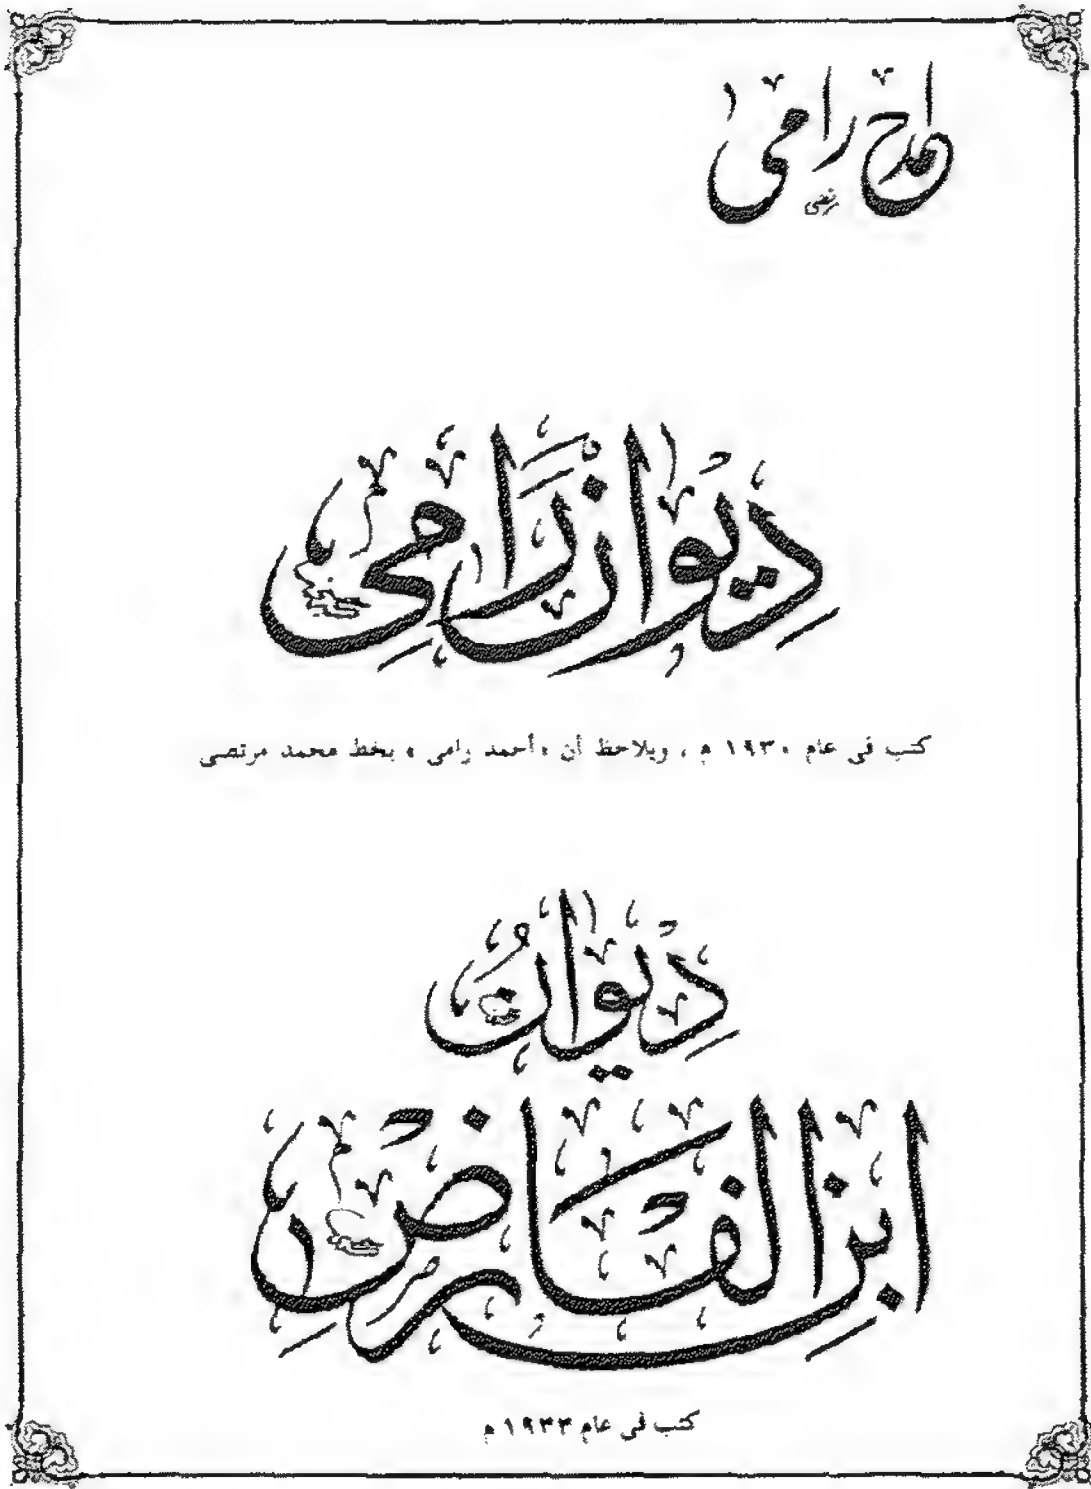 أحمد رامى
مرتضى
دِيوَانُ رَامِى
كتب فى عام ١٩٣٠ م ، ويلاحظ أن « أحمد رامى » بخط محمد مرتضى
دِيوَانُ
ابن الفارض
كتب فى عام ١٩٣٣ م